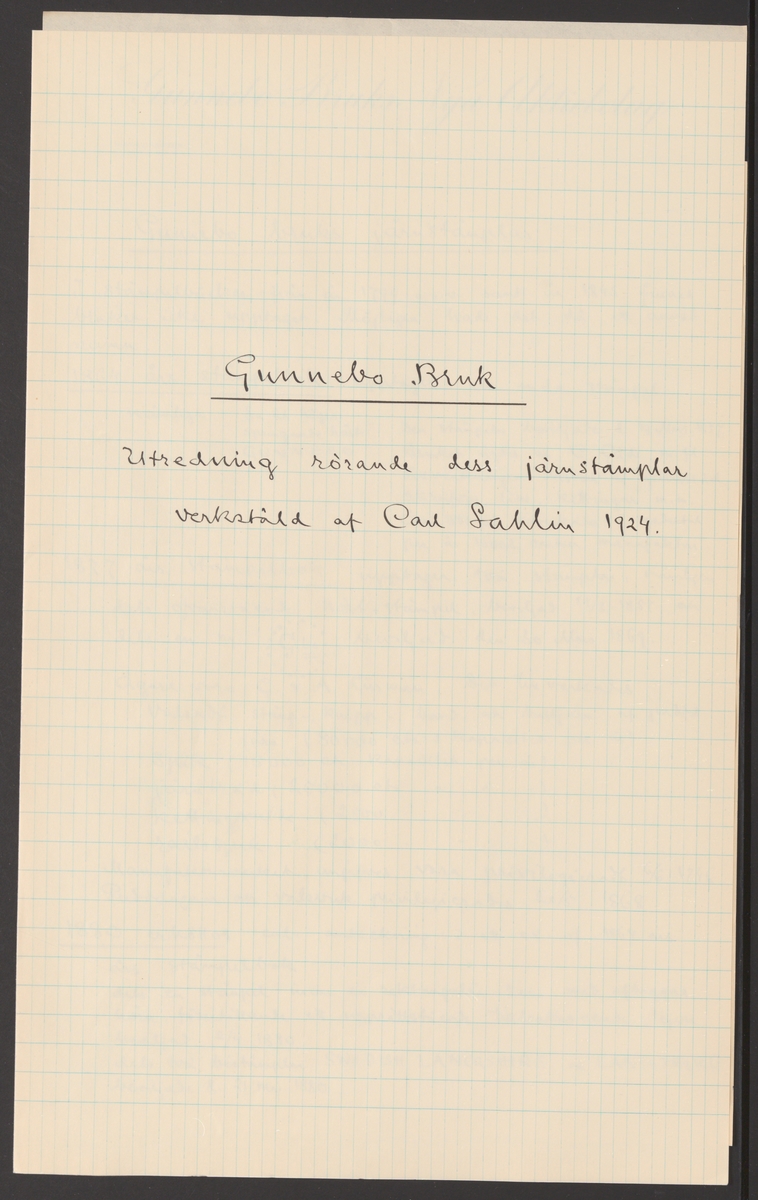 Gunnebo Bruk
Utredning rörande dess järnstämplar
verkstäld af Carl Sahlin 1924.